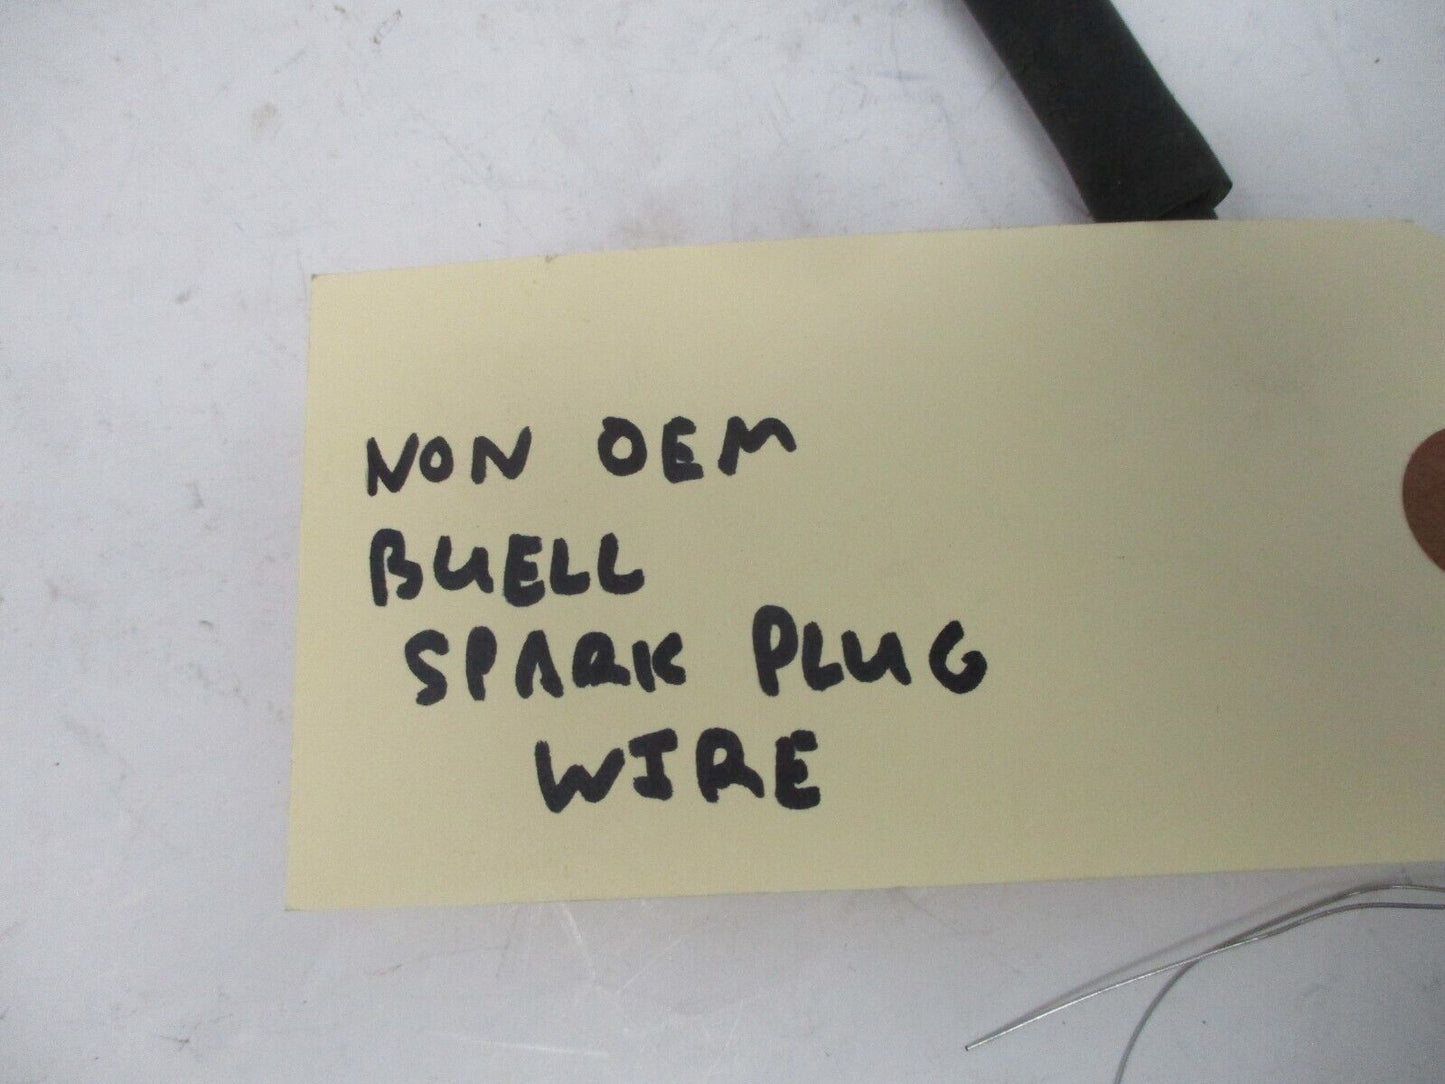 NON OEM
BUELL
SPARK PLUG
WIRE